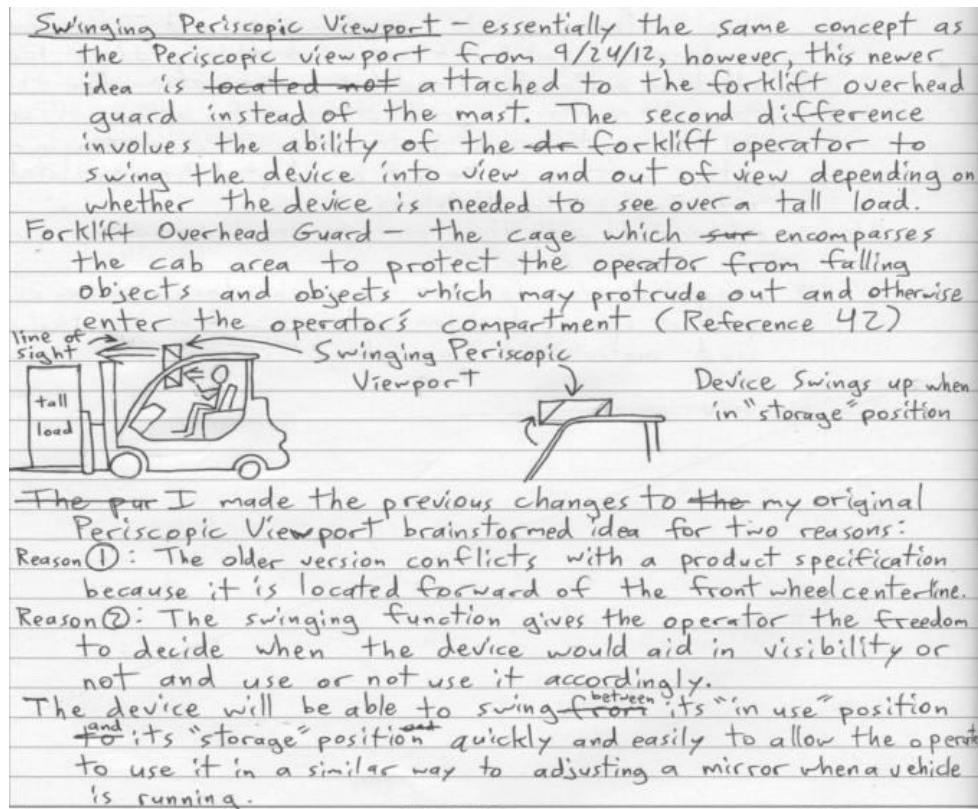 Swinging Periscopic Viewport - essentially the same concept as
the Periscopic viewport from 9/24/12, however, this newer
idea is located not attached to the forklift overhead
guard instead of the mast. The second difference
involves the ability of the dr forklift operator to
swing the device into view and out of view depending on
whether the device is needed to see over a tall load.
Forklift Overhead Guard - the cage which sur encompasses
the cab area to protect the operator from falling
objects and objects which may protrude out and otherwise
enter the operator's compartment (Reference 42)
line of
sight
Swinging Periscopic
Viewport
Device Swings up when
in "storage" position
tall
load
The pur I made the previous changes to the my original
Periscopic Viewport brainstormed idea for two reasons:
Reason 1: The older version conflicts with a product specification
because it is located forward of the front wheel centerline.
Reason 2: The swinging function gives the operator the freedom
to decide when the device would aid in visibility or
not and use or not use it accordingly.
The device will be able to swing from between its "in use" position
to and its "storage" position and quickly and easily to allow the operato
to use it in a similar way to adjusting a mirror when a vehicle
is running.